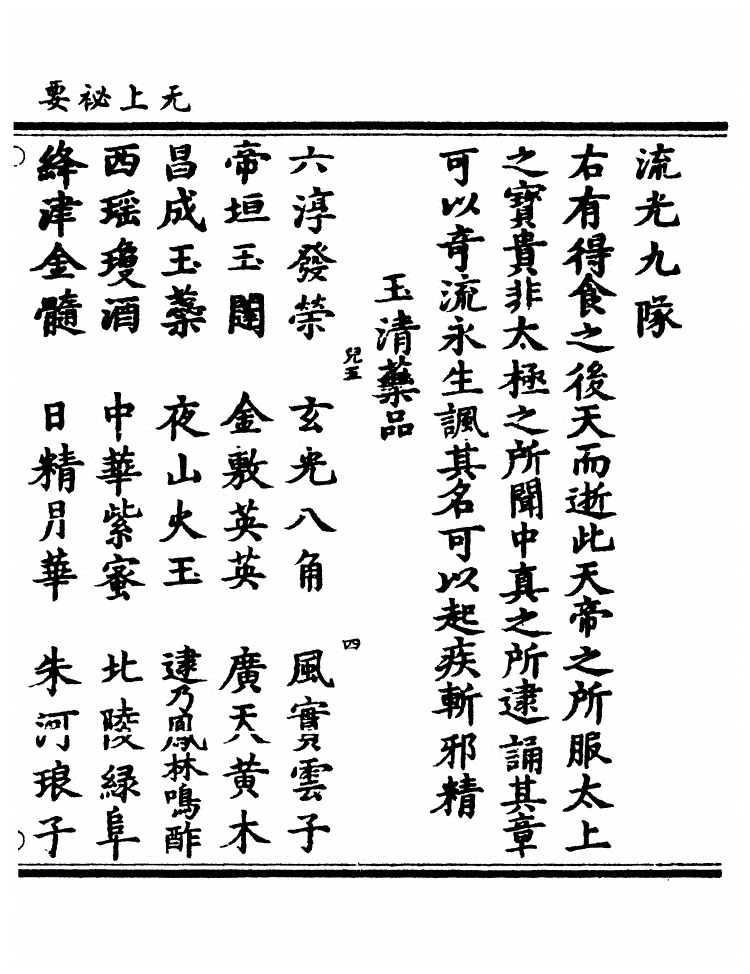 无上袐要
流光九隊
右有得食之後天而逝此天帝之所服太上
之寶貴非太極之所聞中真之所逮誦其章
可以奇流永生諷其名可以起疾斬邪精
玉清藥品
兒五
四
六渟發榮 玄光八角 風實雲子
帝垣玉闥 金敷英英 廣天黄木
昌成玉蘂 夜山火玉 逮乃鳳林鳴酢
西瑶瓊酒 中華紫蜜 北陵緑阜
絳津金髓 日精月華 朱河琅子